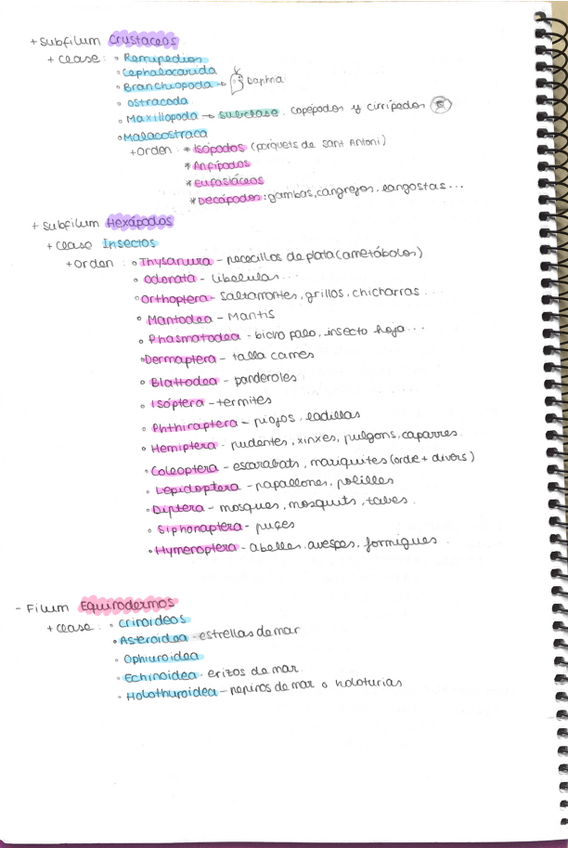 + Subfilum Crustaceos
+ Clase: ◦ Remipedios
◦ Cephalocarida
◦ Branchiopoda → Daphnia
◦ Ostracoda
◦ Maxillopoda → subclase. copépodos y cirrípedos
◦ Malacostraca
+ Orden: * Isópodos (porquets de Sant Antoni)
* Anfípodos
* Eufasiáceos
* Decápodos: gambas, cangrejos, langostas...
+ Subfilum Hexápodos
+ Clase Insectos
+ Orden: ◦ Thysanura - pececillos de plata (ametábolos)
◦ Odonata - Libelulas...
◦ Orthoptera - Saltamontes, grillos, chicharras...
◦ Mantodea - Mantis
◦ Phasmatodea - bicho palo, insecto hoja...
◦ Dermaptera - talla carnes
◦ Blattodea - panderoles
◦ Isóptera - termites
◦ Phthiraptera - piojos, ladillas
◦ Hemiptera - pudentes, xinxes, pulgons, caparres
◦ Coleoptera - escarabats, mariquites (ordre + divers)
◦ Lepidoptera - papallones, polilles
◦ Diptera - mosques, mosquits, tabes.
◦ Siphonaptera - puçes
◦ Hymenoptera - abelles, avespes, formigues
- Filum Equinodermos
+ Clase: ◦ Crinoideos
◦ Asteroidea - estrellas de mar
◦ Ophiuroidea
◦ Echinoidea - erizos de mar
◦ Holothuroidea - pepinos de mar o holoturias